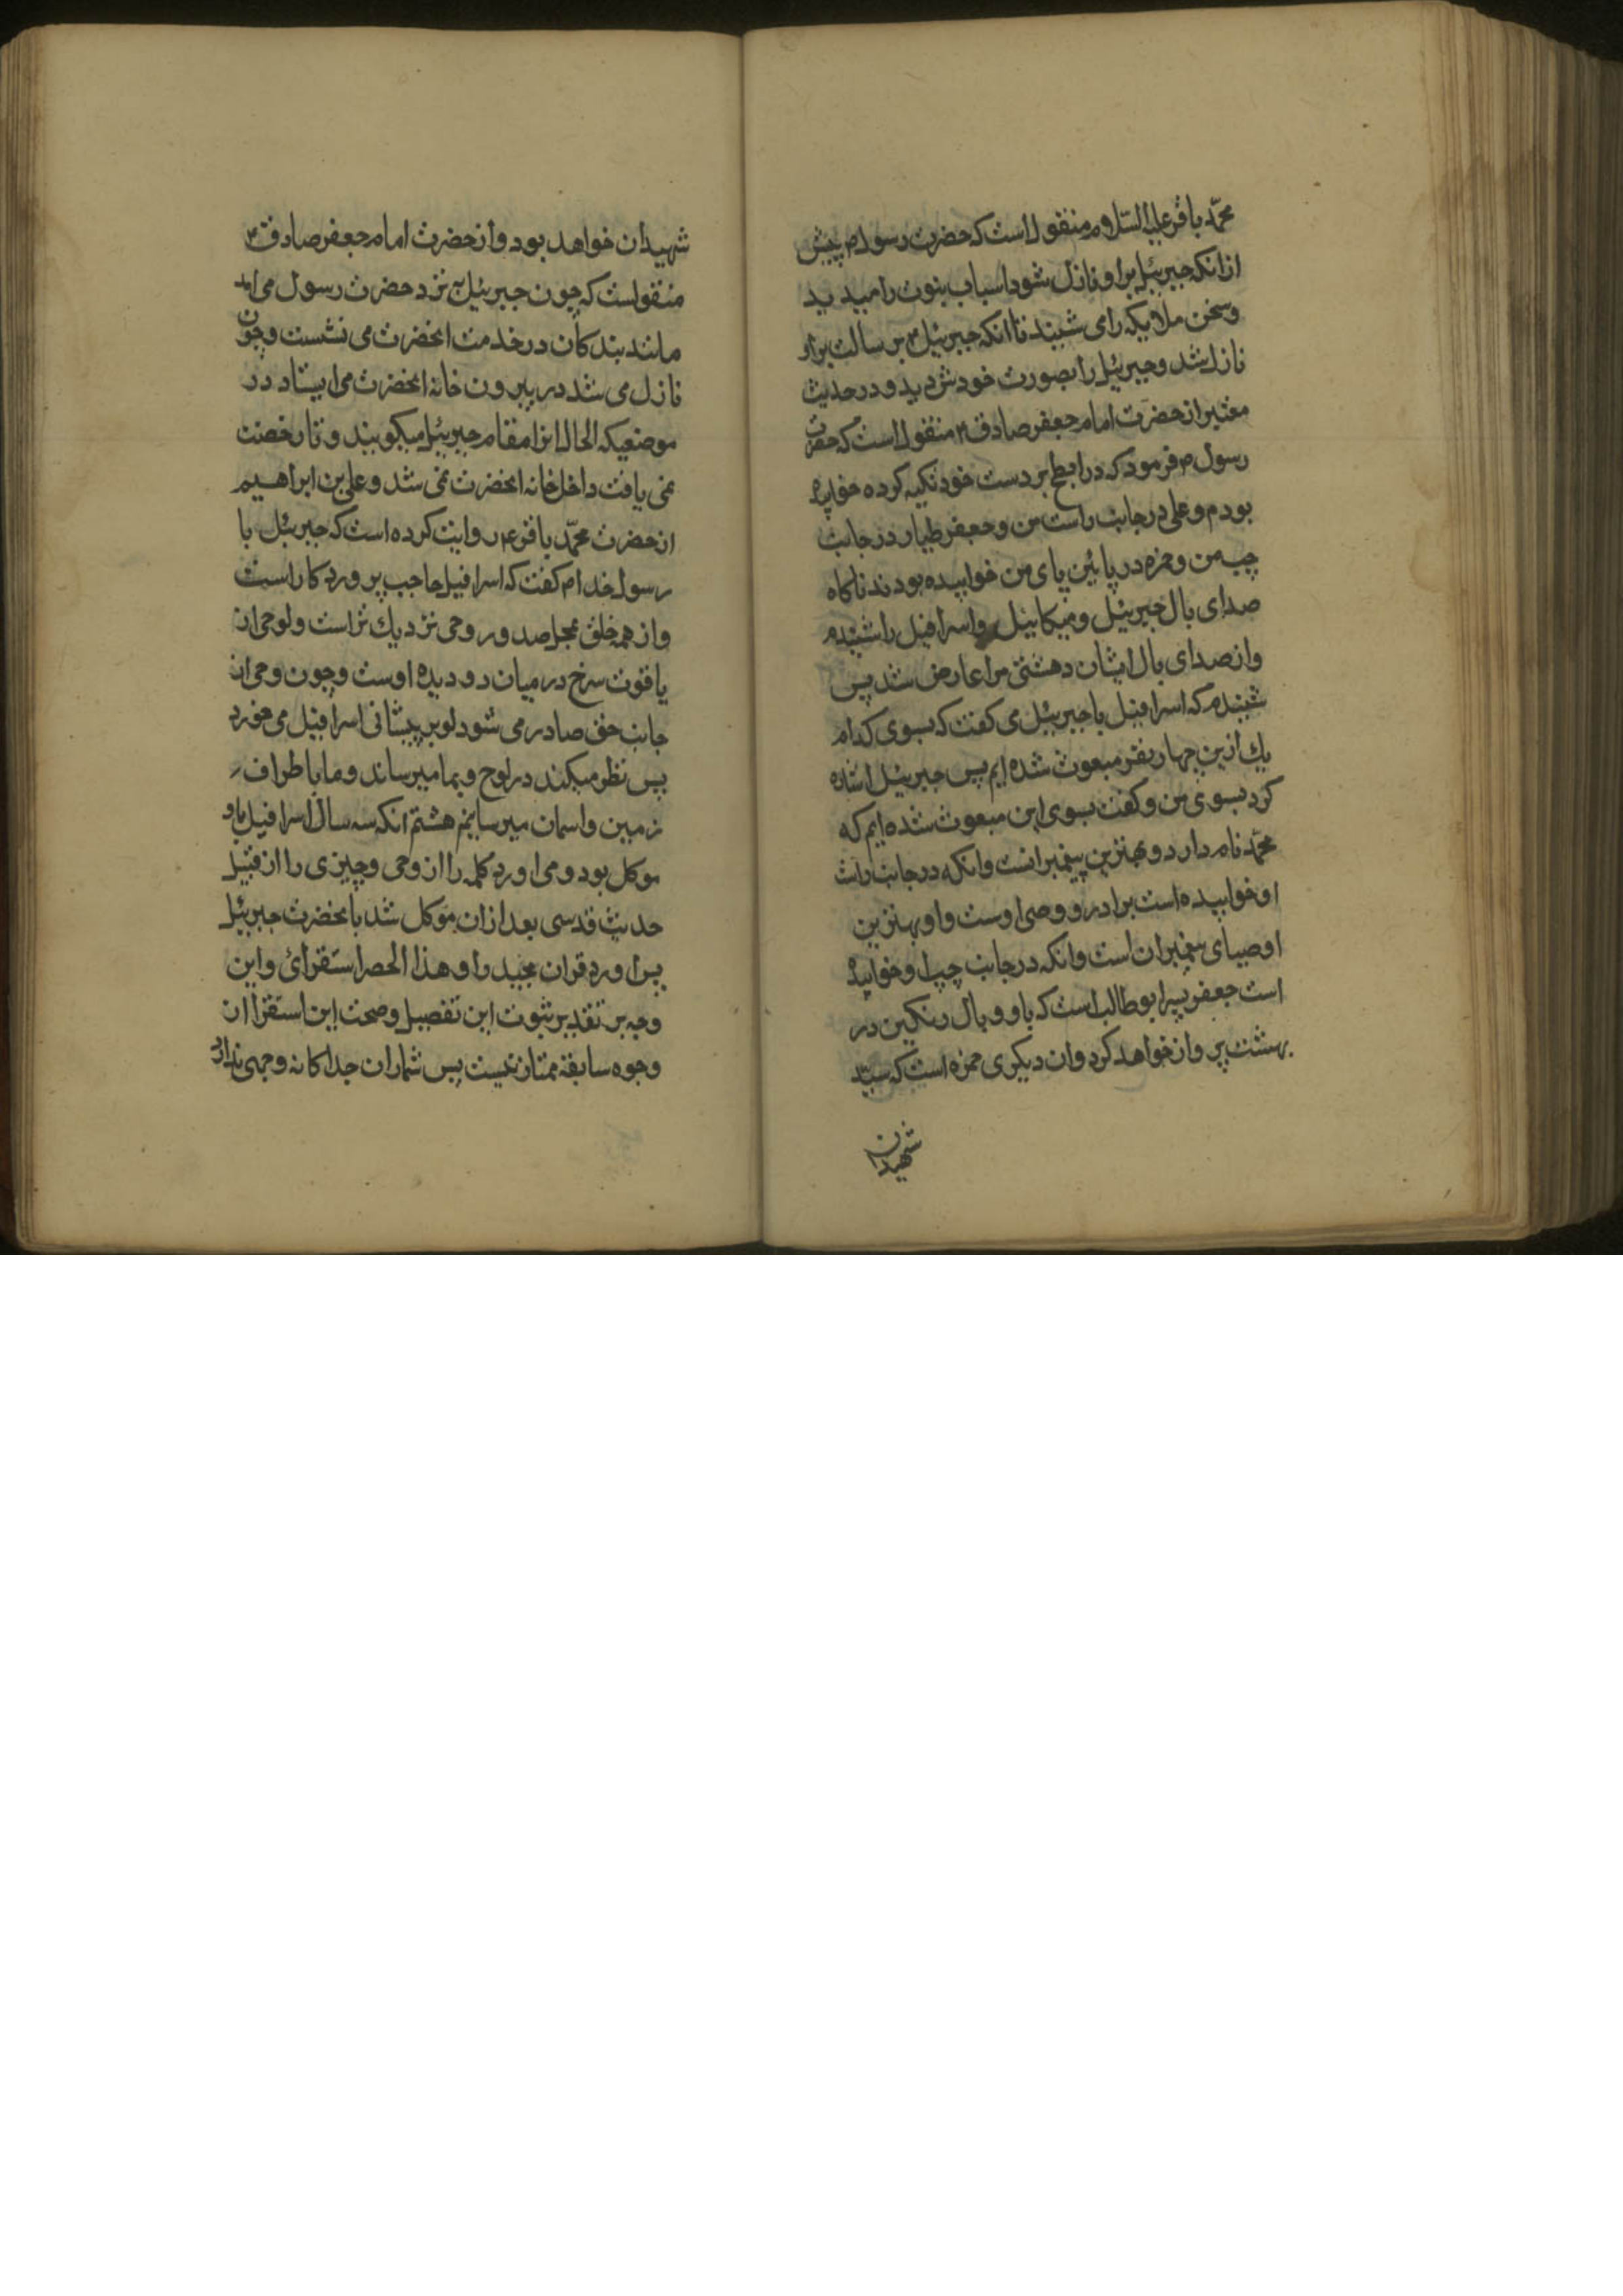 محمّد باقر علیه السّلام منقول است که حضرت رسول ص پیش
ازانکه جبرئیل براو نازل شود اسباب نبوت را میدید
وسخن ملایکه را می شنید تا انکه جبرئیل ع برسالت براو
نازل شد وجبرئیل را بصورت خودش دید و در حدیث
معتبر از حضرت امام جعفر صادق ع منقول است که حضرت
رسول ص فرمود که در ابطح بر دست خود تکیه کرده خوابیده
بودم و علی در جانب راست من و جعفر طیار در جانب
چپ من و حمزه در پائین پای من خوابیده بودند ناکاه
صدای بال جبرئیل و میکائیل و اسرافیل را شنیدم
واز صدای بال ایشان دهشتی مرا عارض شد پس
شنیدم که اسرافیل با جبرئیل می کفت که بسوی کدام
یك ازین چهار نفر مبعوث شده ایم پس جبرئیل اشاره
کرد بسوی من و کفت بسوی این مبعوث شده ایم که
محمّد نام دارد و بهترین پیغمبرانست وانکه در جانب راست
او خوابیده است برادر و وصی اوست و او بهترین
اوصیای پیغمبران است وانکه در جانب چپ او خوابیده
است جعفر پسر ابوطالب است که با دو بال رنکین در
بهشت پرواز خواهد کرد وان دیکری حمزه است که سید
شهیدان
شهیدان خواهد بود واز حضرت امام جعفر صادق ع
منقولست که چون جبرئیل به نزد حضرت رسول می امد
مانند بندکان در خدمت انحضرت می نشست و چون
نازل می شد در بیرون خانه انحضرت می ایستاد در
موضعیکه الحال انرا مقام جبرئیل میکویند و تا رخصت
نمی یافت داخل خانه انحضرت نمی شد و علی بن ابراهیم
از حضرت محمّد باقر ع روایت کرده است که جبرئیل با
رسول خدا ص کفت که اسرافیل حاجب پروردکار است
واز همه خلق بمحل صدور وحی نزدیك تر است ولوحی از
یاقوت سرخ در میان دو دیده اوست وچون وحی از
جانب حق صادر می شود لوح بر پیشانی اسرافیل می خورد
پس نظر میکند در لوح و بما میرساند و ما باطراف
زمین واسمان میرسانیم هشتم انکه سه سال اسرافیل باو
موکل بود و می اورد کلمه را از وحی و چیزی را از قبیل
حدیث قدسی بعد ازان موکل شد بانحضرت جبرئیل
پس اورد قران مجید را و هذا الحصر استقرائ واین
وجه بر تقدیر ثبوت این تفصیل وصحت این استقرا از
وجوه سابقه ممتاز نیست پس شمار ان جداکانه وجهی ندارد